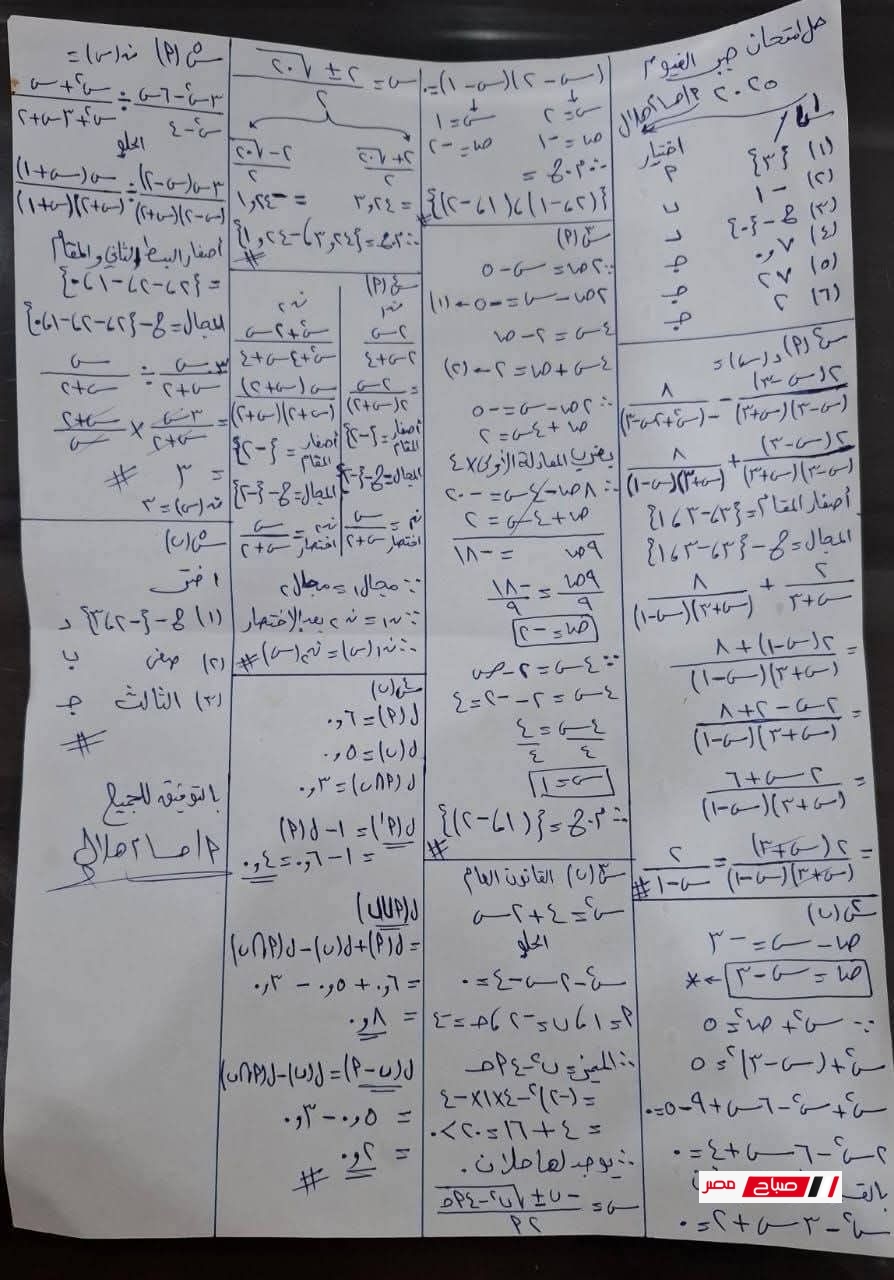 حل امتحان جبر الفيوم
٢٠٢٥
س١/
اختيار
(١) {٣} ٢
(٢) -١ د
(٣) ح-{٠} د
(٤) ٠,٧ جـ
(٥) ٢٧ جـ
(٦) ٢ جـ
س٢(٢) د(س)=
٢(س-٣)/(س-٣)(س+٣) - ٨/-(س٢+٢س-٣)
٢(س-٣)/(س-٣)(س+٣) + ٨/(س+٣)(س-١)
أصفار المقام={٣،-٣،١}
المجال=ح-{٣،-٣،١}
٢/س+٣ + ٨/(س+٣)(س-١)
= ٢(س-١)+٨/(س+٣)(س-١)
= ٢س-٢+٨/(س+٣)(س-١)
= ٢س+٦/(س+٣)(س-١)
= ٢(س+٣)/(س+٣)(س-١) = ٢/س-١ #
س٢(ب)
ص-س=-٣
ص=س-٣ ←*
∵ س٢+ص٢=٥
س٢+(س-٣)٢=٥
س٢+س٢-٦س+٩-٥=٠
٢س٢-٦س+٤=٠
س٢-٣س+٢=٠
(س-٢)(س-١)=٠
س=٢ س=١
ص=-١ ص=-٢
∴م.ح=
{(٢،-١)،(١،-٢)} #
س٣(٢)
∵٢ص=س-٥
٢ص-س=-٥←(١)
٤س=٢-ص
٤س+ص=٢←(٢)
∴٢ص-س=-٥
ص+٤س=٢
بضرب المعادلة الأولى×٤
∴٨ص-٤س=-٢٠
ص+٤س=٢
٩ص =-١٨
٩ص/٩ = -١٨/٩
ص=-٢
∵٤س=٢-ص
٤س=٢--٢=٤
٤س/٤ = ٤/٤
س=١
∴م.ح={(١،-٢)} #
س٣(ب) القانون العام
س٢=٤+٢س
الحلو
س٢-٢س-٤=٠
٢=١،ب=-٢،جـ=-٤
∴المميز=ب٢-٤٢جـ
=(-٢)٢-٤×١×-٤
=٤+١٦=٢٠>٠
∴يوجد لها حلان.
س=-ب±√ب٢-٤٢جـ/٢٢
س=٢±√٢٠/٢
٢+√٢٠/٢ ٢-√٢٠/٢
=٣,٢٤ =-١,٢٤
∴م.ح={٣,٢٤،-١,٢٤} #
س٤(٢)
ن١
٢س/٢س+٤
=٢س/٢(س+٢)
أصفار المقام={-٢}
المجال=ح-{-٢}
ن١ اختصار=س/س+٢
ن٢
س٢+٢س/س٢+٤س+٤
س(س+٢)/(س+٢)(س+٢)
أصفار المقام={-٢}
المجال=ح-{-٢}
ن٢ اختصار=س/س+٢
∵ مجال١=مجال٢
∵ن١=ن٢ بعد الاختصار
∴ن١(س)=ن٢(س)#
س٤(ب)
ل(٢)=٠,٦
ل(ب)=٠,٥
ل(٢∩ب)=٠,٣
ل(٢')=١-ل(٢)
=١-٠,٦=٠,٤
ل(٢∪ب)
=ل(٢)+ل(ب)-ل(٢∩ب)
=٠,٦+٠,٥-٠,٣
=٠,٨
ل(ب-٢)=ل(ب)-ل(٢∩ب)
=٠,٥-٠,٣
=٠,٢
#
س٥(٢) ن(س)=
٣س٢-٦س/س٢-٤ ÷ س٢+س/س٢+٣س+٢
الحلو
٣س(س-٢)/(س-٢)(س+٢) ÷ س(س+١)/(س+٢)(س+١)
أصفار البسط الثاني والمقام
={٢،-٢،-١،٠}
المجال=ح-{٢،-٢،-١،٠}
٣س/س+٢ ÷ س/س+٢
=٣س/س+٢ × س+٢/س
=٣ #
ن(س)=٣
س٥(ب)
اختر
(١) ح-{-٢،٣} د
(٢) صفر ب
(٣) الثالث جـ
#
بالتوفيق للجميع
صباح مصر